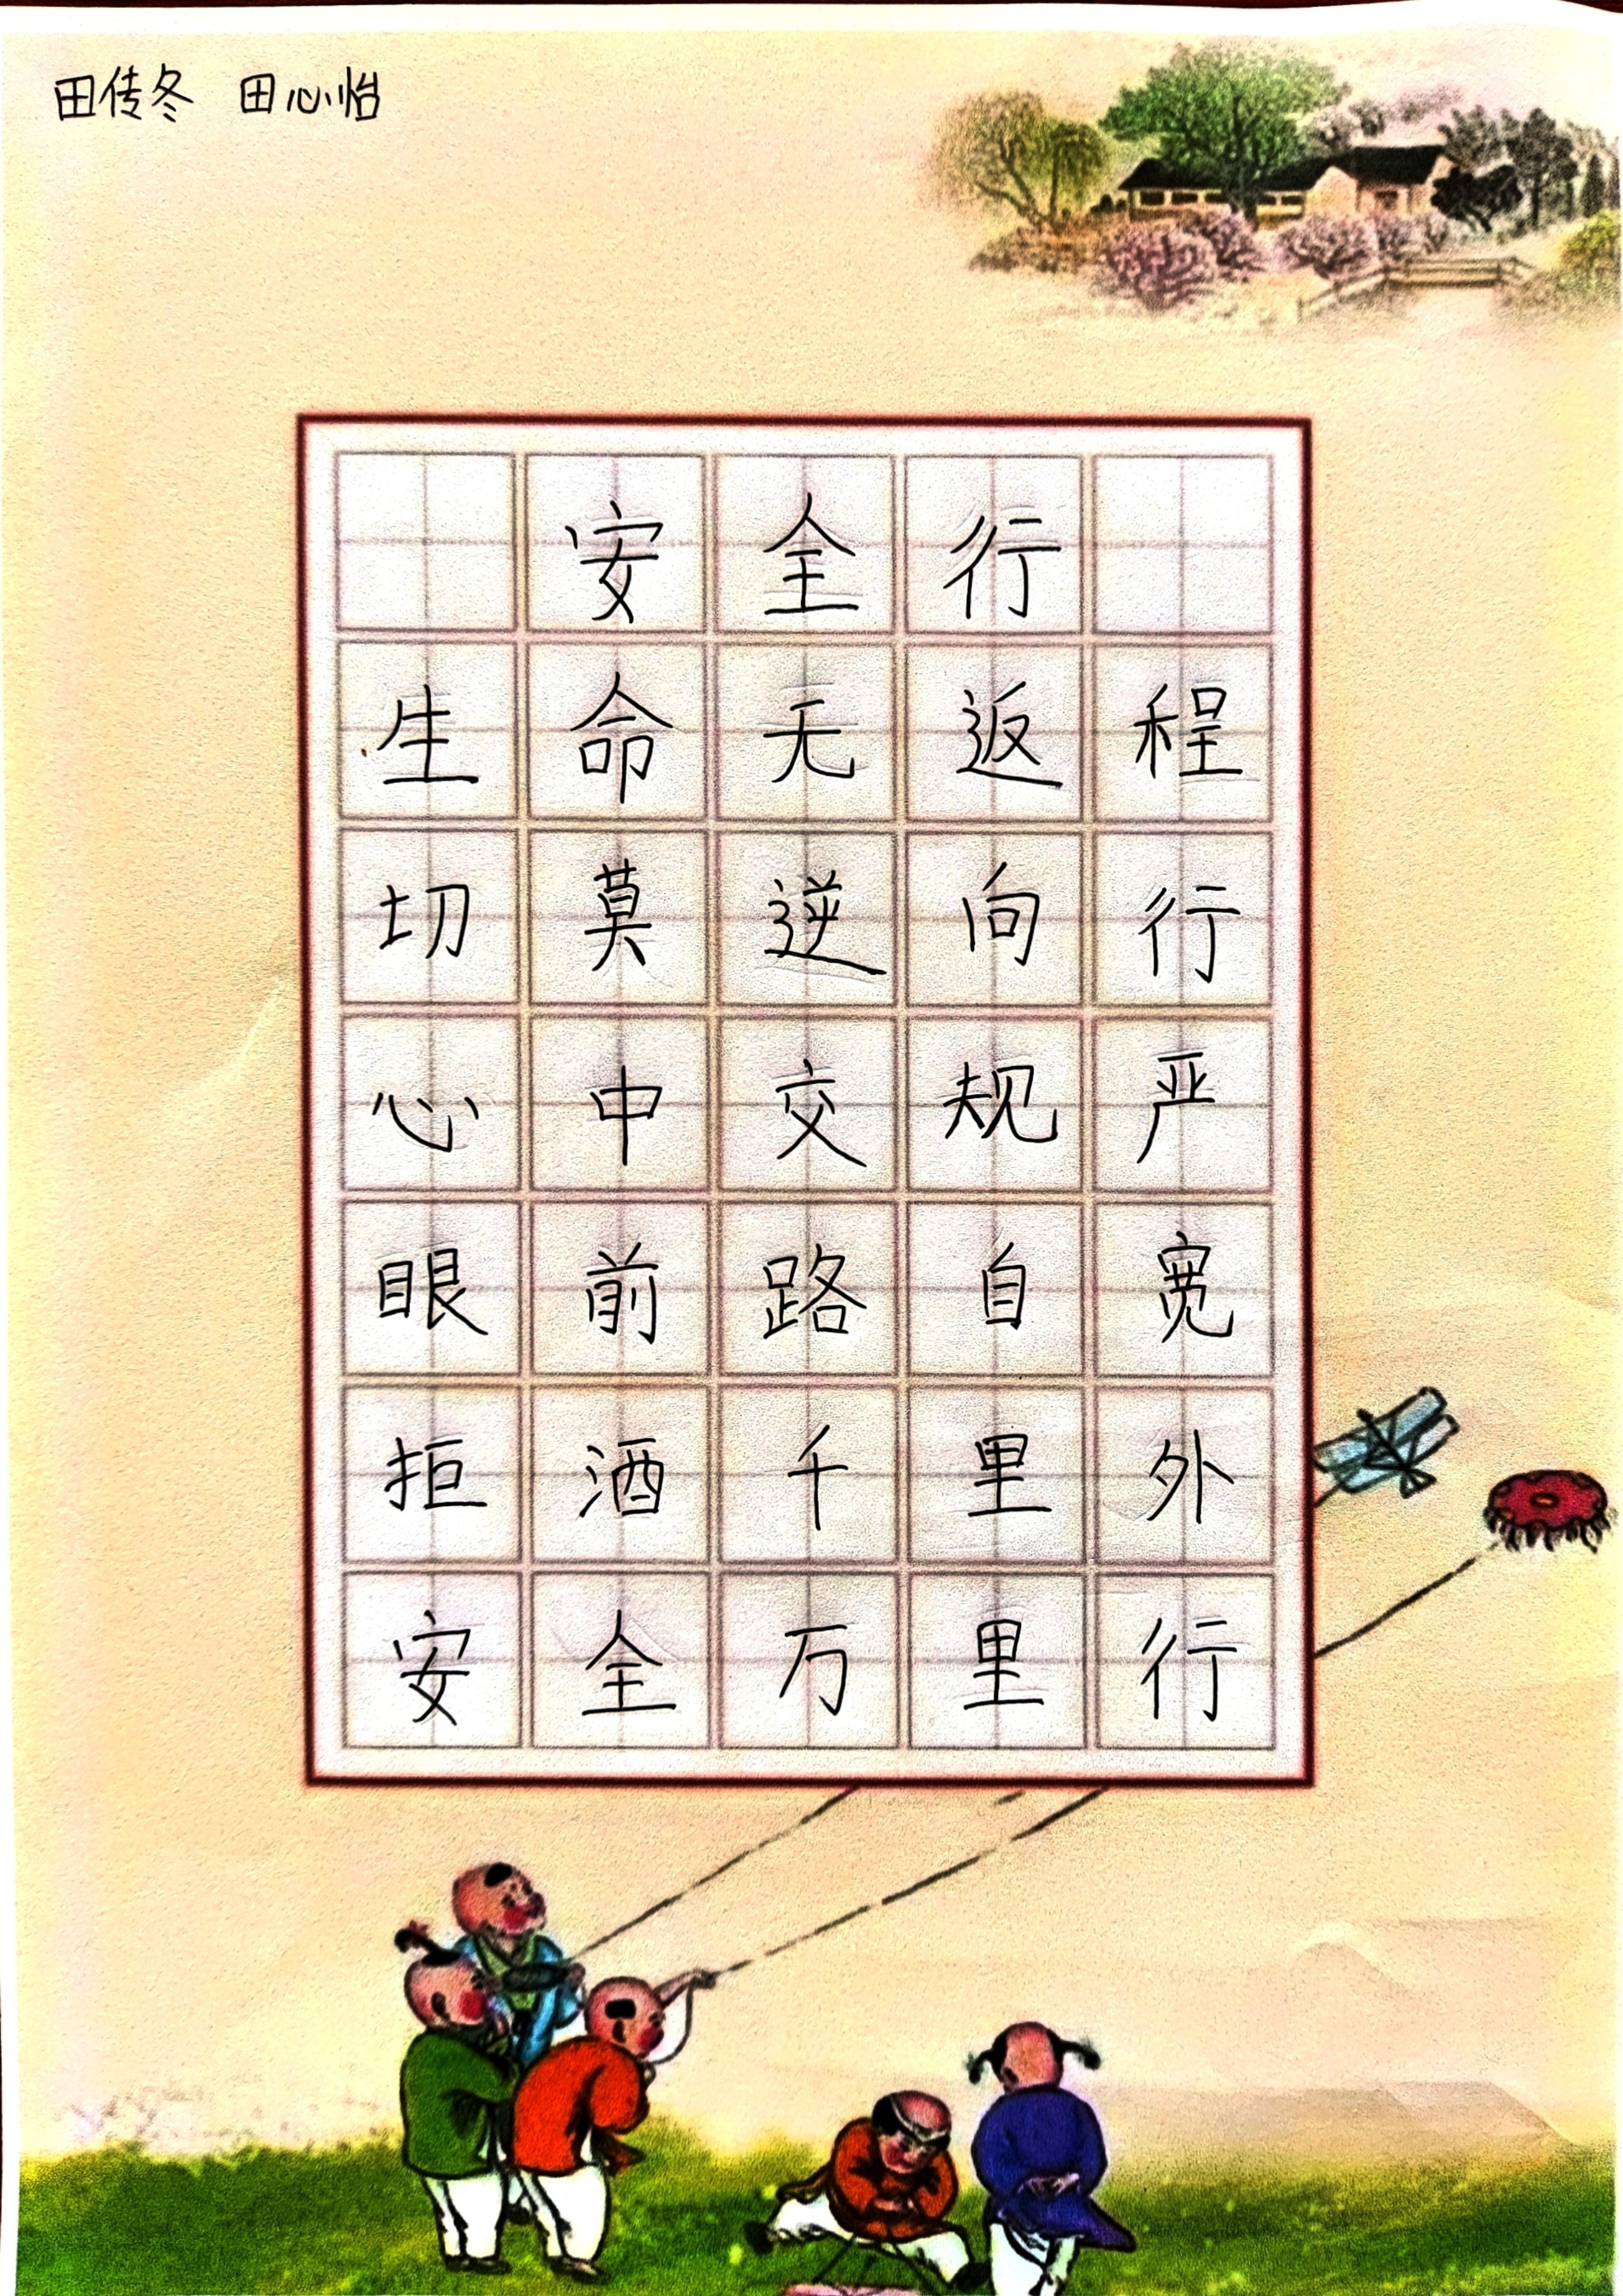 田传冬 田心怡
安全行
生命无返程
切莫逆向行
心中交规严
眼前路自宽
拒酒千里外
安全万里行